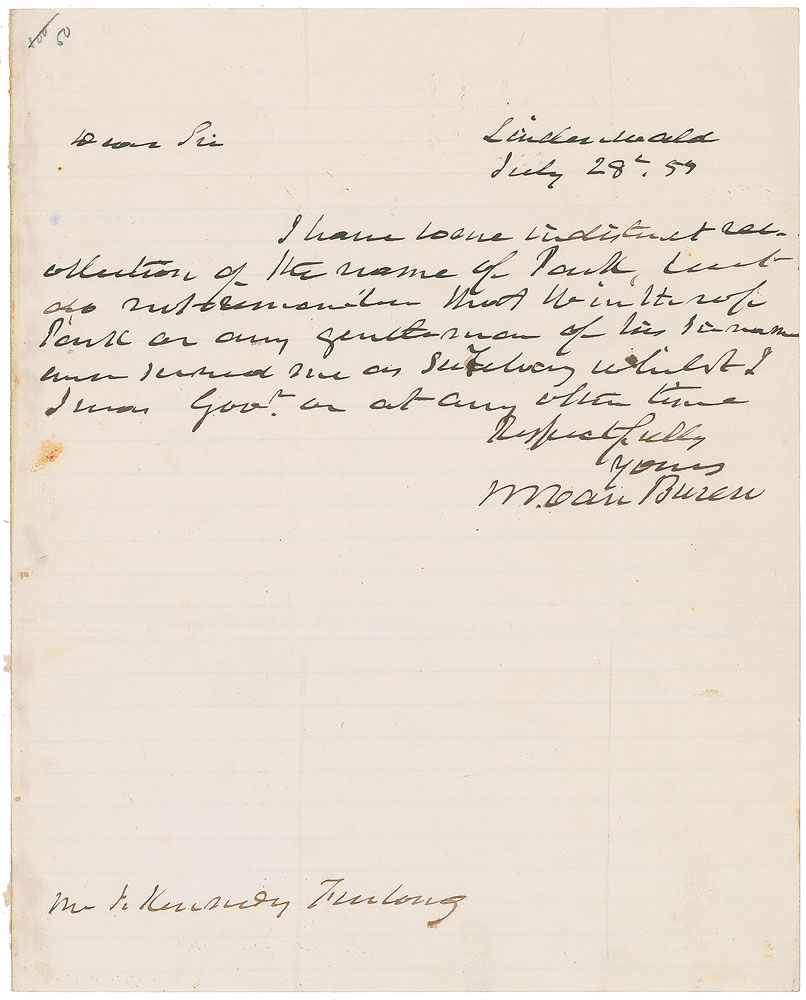 100 50
Dear Sir
Lindenwald
July 28t. 57
I have some indistinct rec-
ollection of the name of Park, but
do not remember that Winthrop
Park or any gentleman of his Sirname
ever served me as Secretary whilst I
I was Govr. or at any other time
Respectfully
yours
M. Van Buren
Mr J. Kennedy Furlong